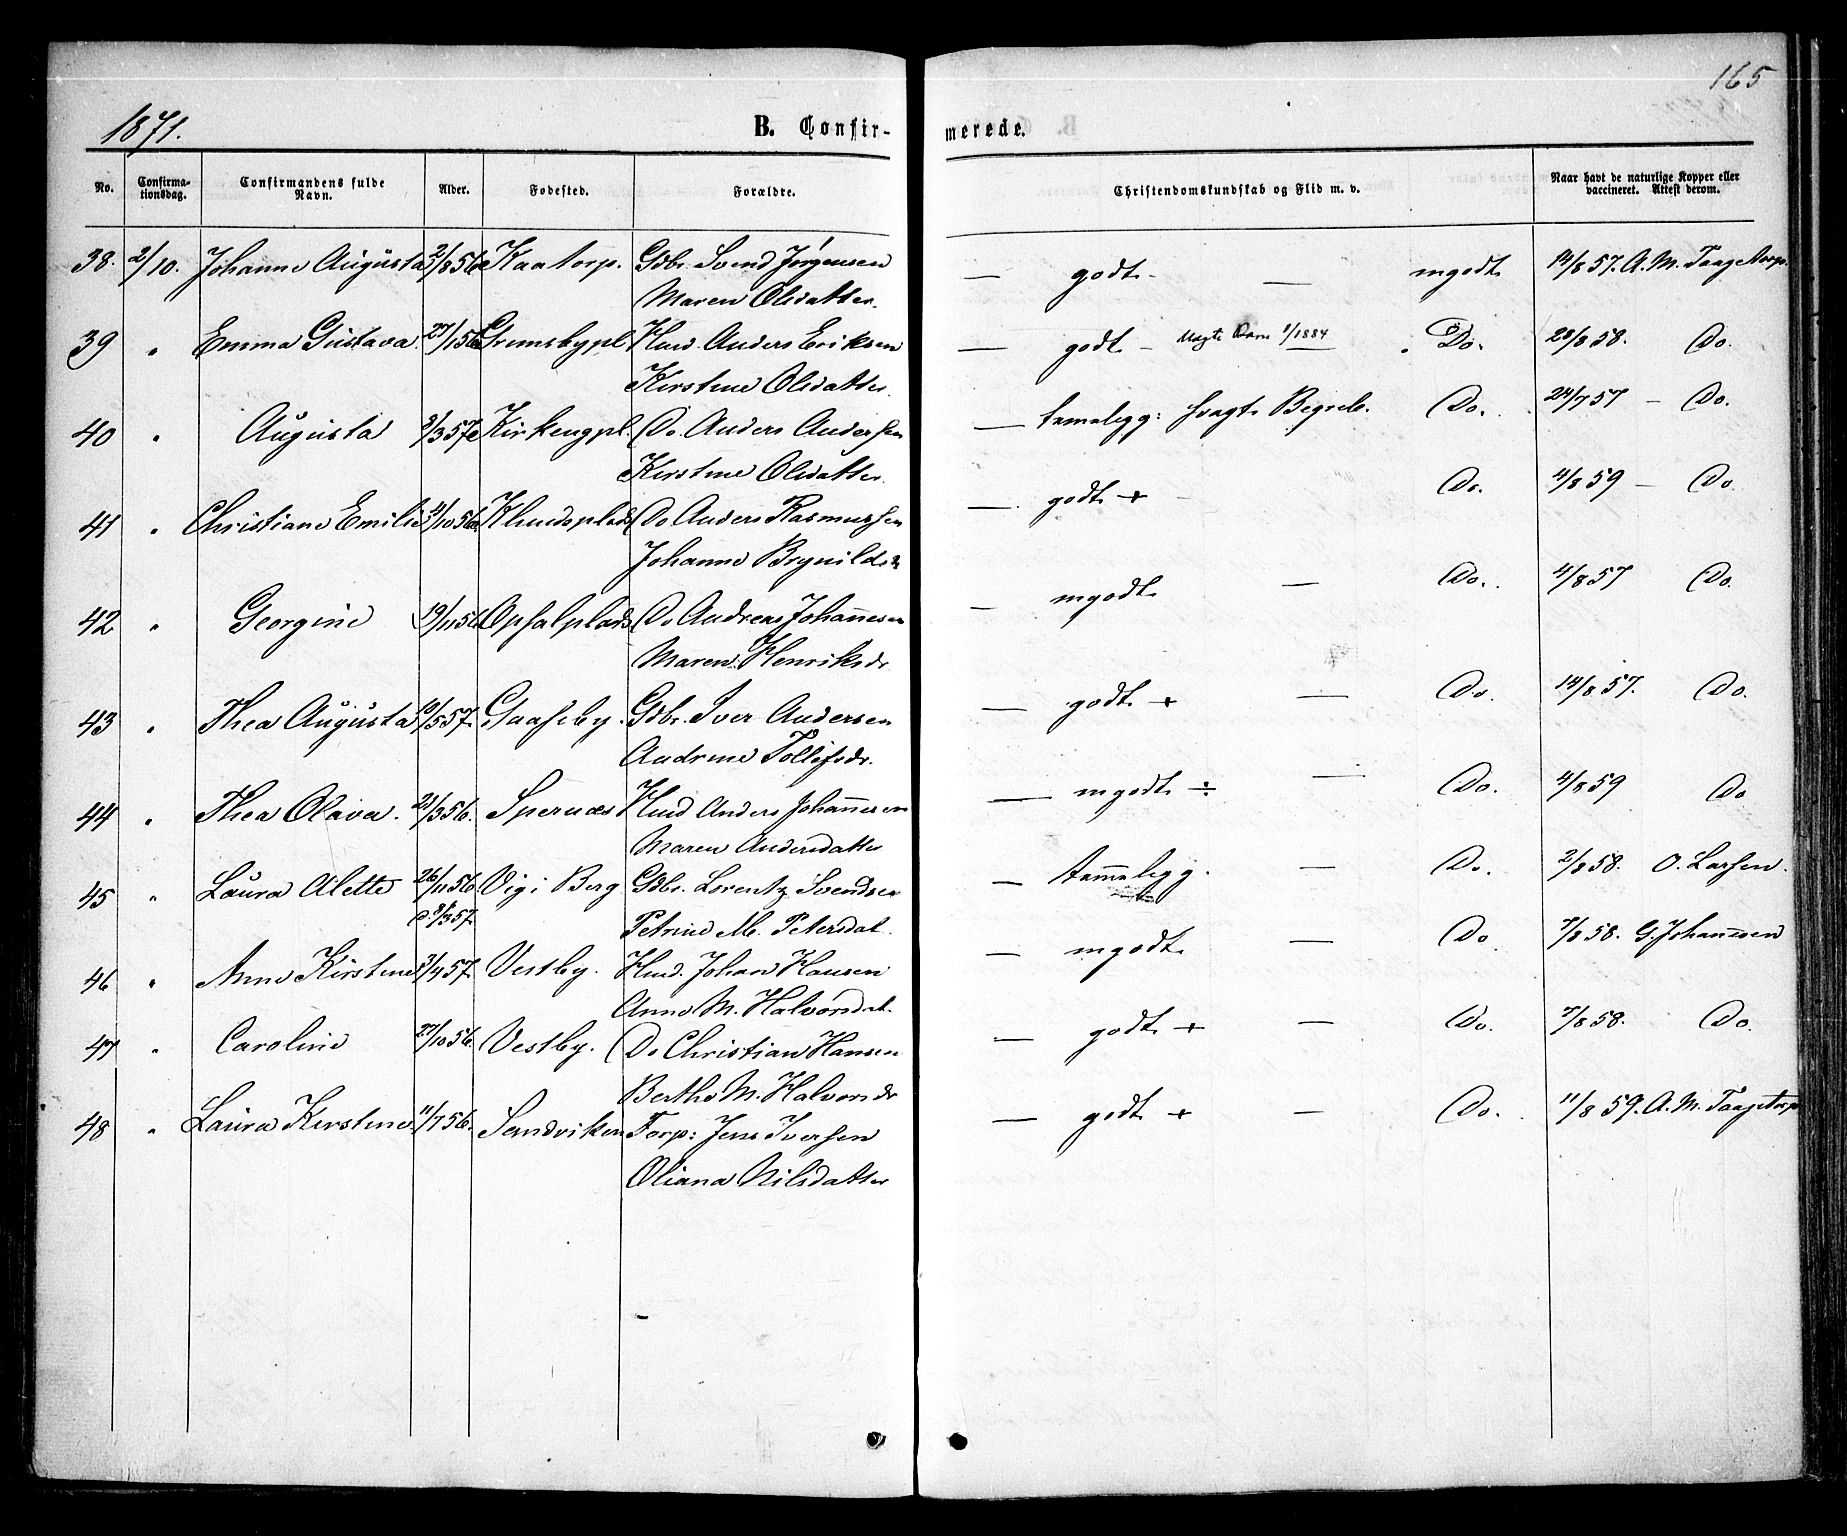 165
1871.
B. Confir-
merede.
No. Confirma-tionsdag. Confirmandens fulde Navn. Alder. Fødested. Forældre. Christendomskundskab og Flid m. v. Naar havt de naturlige Kopper eller vaccineret. Attest derom.
38. 2/10. Johanne Augusta 2/8 56 Kaatorp. Gdbr. Svend Jørgensen — godt - — mgodt 14/8 57. A. M. Taagetorp.
Maren Olsdatter.
39 " Emma Gustava 27/1 56 Grimsbypl. Hmd. Anders Eriksen — godt - 1/1884 Do. 28/8 58. Do.
Kirstine Olsdatter.
40 " Augusta 3/3 57 Kirkengpl. Do. Anders Andersen — tamalegg: svagt Begreb. Do. 24/7 57 - Do.
Kirstine Olsdatter.
41 " Christiane Emilie 10 56 Do Anders Rasmussen — godt + Do. 4/8 59 - Do.
Johanne
42 " Georgine 19/11 56 Opsalplads Do Andreas Johannesen — mgodt — Do. 4/8 57 Do.
Maren Henriksdr
43 " Thea Augusta 10/5 57. Gaaseby. Gdbr. Iver Andersen — godt + — Do. 14/8 57. Do.
Andrine Tollefsdr.
44 " Thea Olava. 21/3 56. Spernæs Hmd Anders Johannesen — mgodt ÷ — Do. 4/8 59 Do
Maren Andersdatter
45 " Laura Alette 26/11 56. Vig i Berg Gdbr. Lorentz Svendsen — tammelegg. — Do. 2/8 58. O. Larsen.
d 8/3 57. Petrine M. Petersdat.
46 " Anne Kirstine 3/4 57. Vestby. Hmd. Johan Hansen — mgodt — Do 7/8 58. G. Johannesen
Anne M. Halvorsdat.
47 " Caroline 27/10 56. Vestby. Do Christian Hansen — godt + — Do. 7/8 58. Do.
Berthe M. Halvorsdr
48 " Laura Kirstine 11/7 56. Sandviken Torp: Jens Iversen — godt + — Do. 11/8 59. A. M. Taagetorp
Oliana Nilsdatter